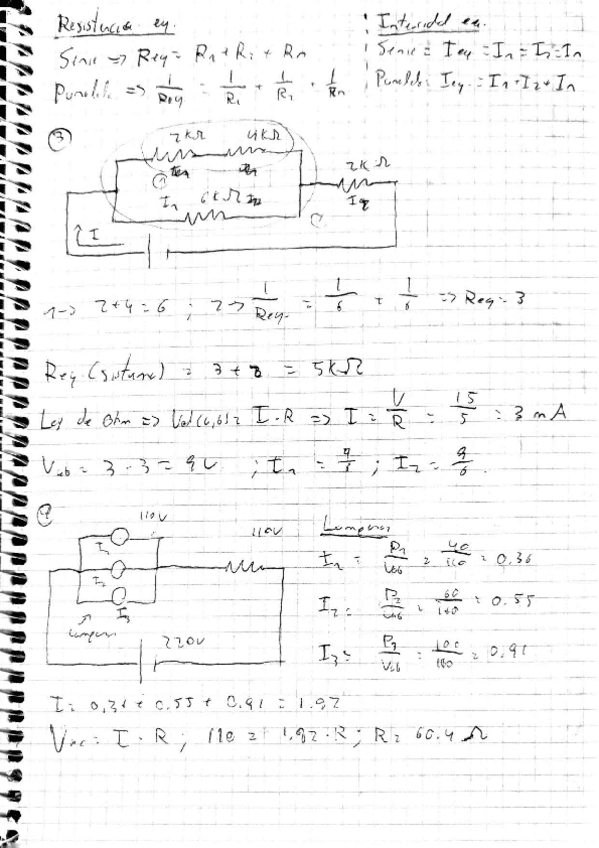 Resistencia eq.
Serie => Req = R1 + R2 + Rn
Paralelo => 1/Req = 1/R1 + 1/R2 + 1/Rn
Intensidad eq.
Serie = Ieq = I1 = I2 = In
Paralelo: Ieq = I1 + I2 + In
3
2kΩ 4kΩ
2kΩ
I1 6kΩ
I
1-> 2+4=6 ; 2-> 1/Req. = 1/6 + 1/6 => Req = 3
Req (sistema) = 3 + 2 = 5kΩ
Ley de Ohm => I · R => I = V/R = 15/5 = 3 mA
Vab = 3 · 3 = 9V ; I1 = 9/6 ; I2 = 9/6.
110V
110V
I1
I2
I3
Lamparas
220V
Lamparas
I1 = P1/Vab = 40/110 = 0.36
I2 = P2/Vab = 60/110 = 0.55
I3 = P3/Vab = 100/110 = 0.91
I = 0,36 + 0.55 + 0.91 = 1.82
I · R ; 110 = 1.82 · R ; R = 60.4 Ω